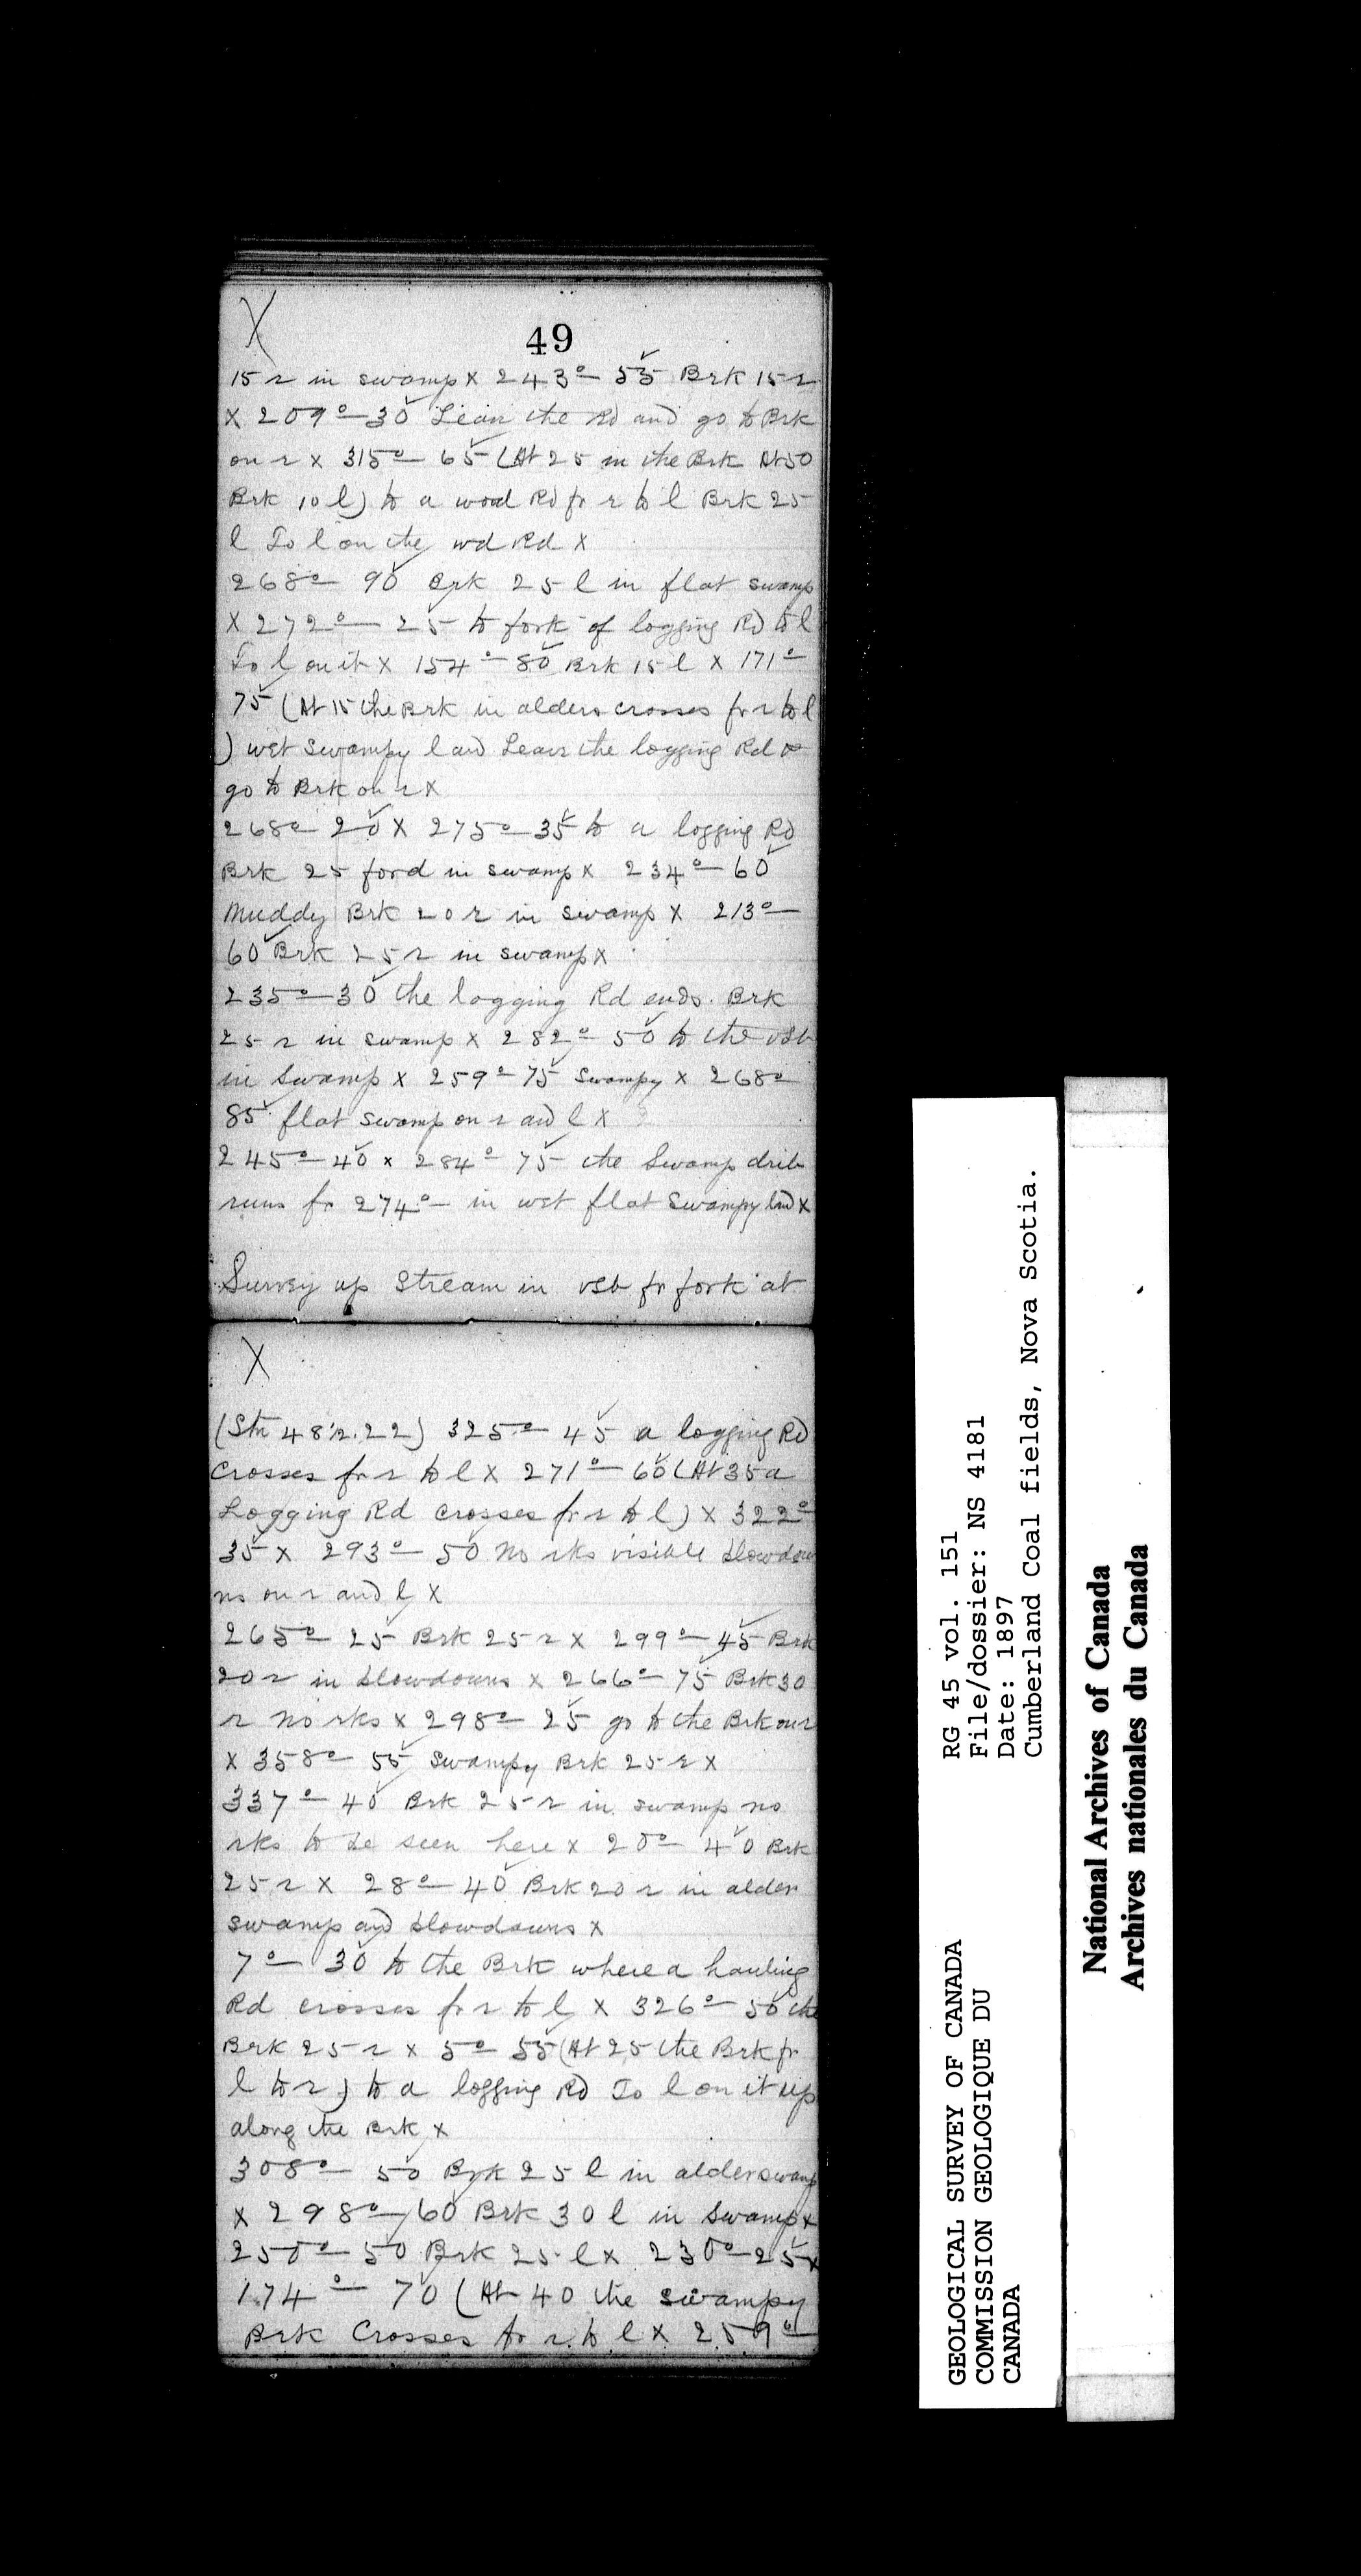 X
49
15 r in swamp x 243° 55 Brk 15 r
x 209° 30 Leave the Rd and go to Brk
on r x 315° 65 (At 25 in the Brk At 50
Brk 10 l) to a wood Rd fr r to l Brk 25
l To l on the wd Rd x
268° 90 Brk 25 l in flat swamp
x 272° 25 to fork of logging Rd to l
To l on it x 154° 80 Brk 15 l x 171°
75 (At 15 the Brk in alders crosses fr r to l
) wet swampy land Leave the logging Rd &
go to Brk on r x
268° 20 x 275° 35 to a logging Rd
Brk 25 ford in swamp x 234° 60
Muddy Brk 20 r in swamp x 213°
60 Brk 25 r in swamp x
235° 30 the logging Rd ends. Brk
25 r in swamp x 282° 50 to the vsb
in swamp x 259° 75 swampy x 268°
85 flat swamp on r and l x
245° 40 x 284° 75 the swamp drib
runs fr 274° in wet flat swampy lnd x
Survey up Stream in vsb fr fork at
X
(Stn 48½.22) 325° 45 a logging Rd
crosses fr r to l x 271° 60 (At 35 a
Logging Rd crosses fr r to l) x 322°
35 x 293° 50 no rks visible blowdow
ns on r and l x
265° 25 Brk 25 r x 299° 45 Brk
20 r in blowdowns x 266° 75 Brk 30
r no rks x 298° 25 go to the Brk on r
x 358° 55 swampy Brk 25 r x
337° 40 Brk 25 r in swamp no
rks to be seen here x 20° 40 Brk
25 r x 28° 40 Brk 20 r in alder
swamp and blowdowns x
7° 30 to the Brk where a hauling
Rd crosses fr r to l x 326° 50 the
Brk 25 r x 5° 55 (At 25 the Brk fr
l to r) to a logging Rd To l on it up
along the Brk x
308° 50 Brk 25 l in alder swamp
x 298° 60 Brk 30 l in swamp x
250° 50 Brk 25 l x 230° 25 x
174° 70 (At 40 the swampy
Brk Crosses fr r to l x 259°
GEOLOGICAL SURVEY OF CANADA
COMMISSION GEOLOGIQUE DU
CANADA
RG 45 vol. 151
File/dossier: NS 4181
Date: 1897
Cumberland Coal fields, Nova Scotia.
National Archives of Canada
Archives nationales du Canada